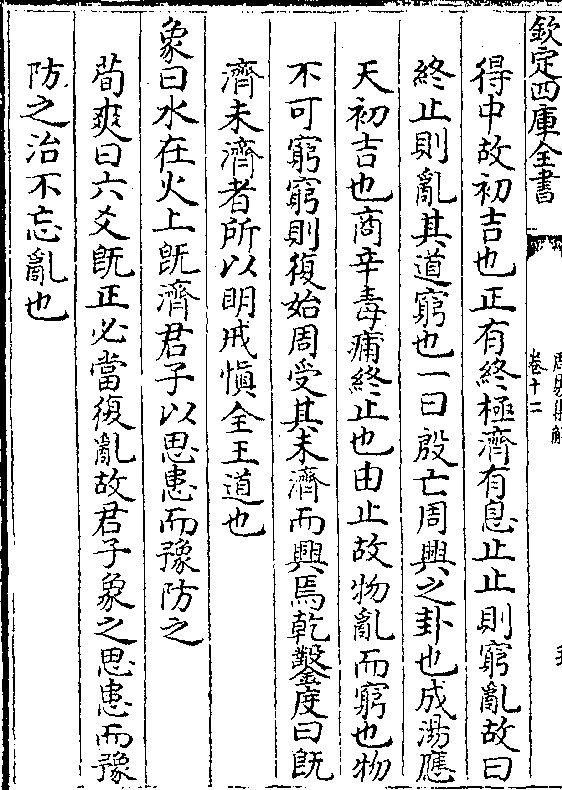 欽定四庫全書
卷十二
得中故初吉也正有終極濟有息止止則窮亂故曰
終止則亂其道窮也一曰殷亡周興之卦也成湯應
天初吉也商辛毒痡終止也由止故物亂而窮也物
不可窮窮則復始周受其未濟而興焉乾鑿度曰旣
濟未濟者所以明戒愼全王道也
象曰水在火上旣濟君子以思患而豫防之
荀爽曰六爻旣正必當復亂故君子象之思患而豫
防之治不忘亂也